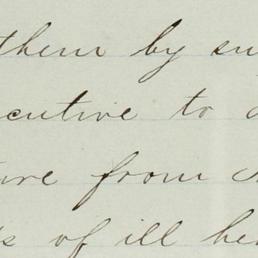 them by su
ecutive to a
ure from
s of ill he